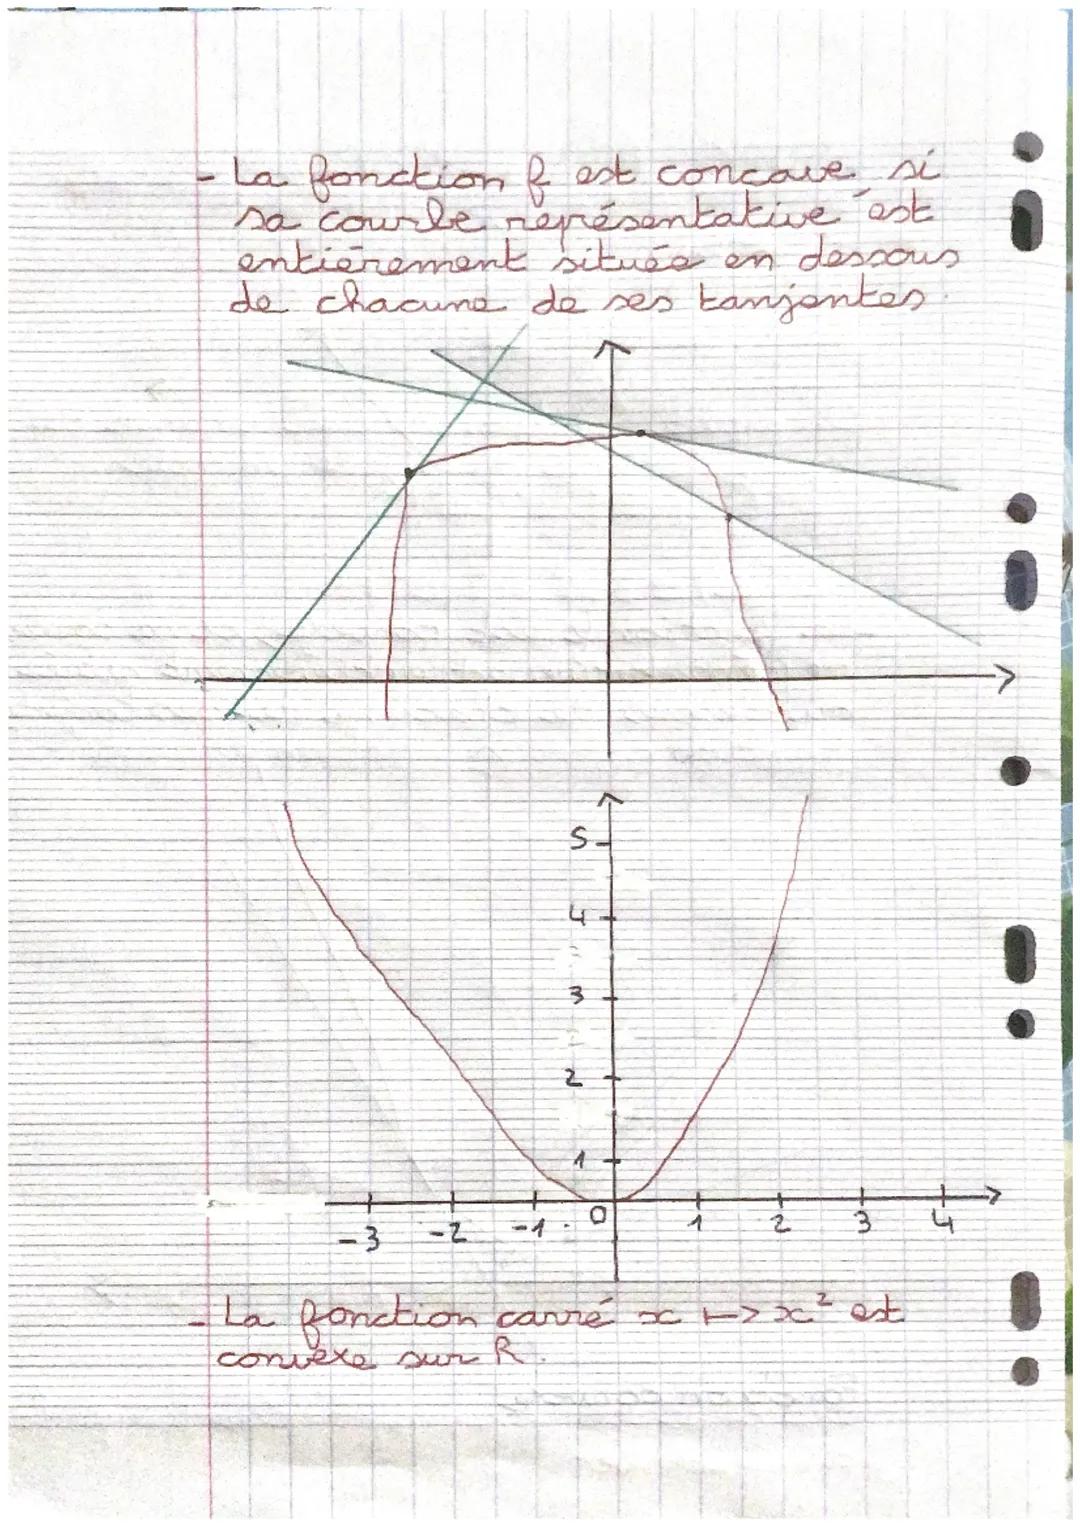 - La fonction f est concave si
sa courbe représentative est
entièrement située en dessous
de chacune de ses tanjentes.
5
4
3
2
1
-3 -2 -1 0 1 2 3 4
- La fonction carré x ↦ x² est
convexe sur R.